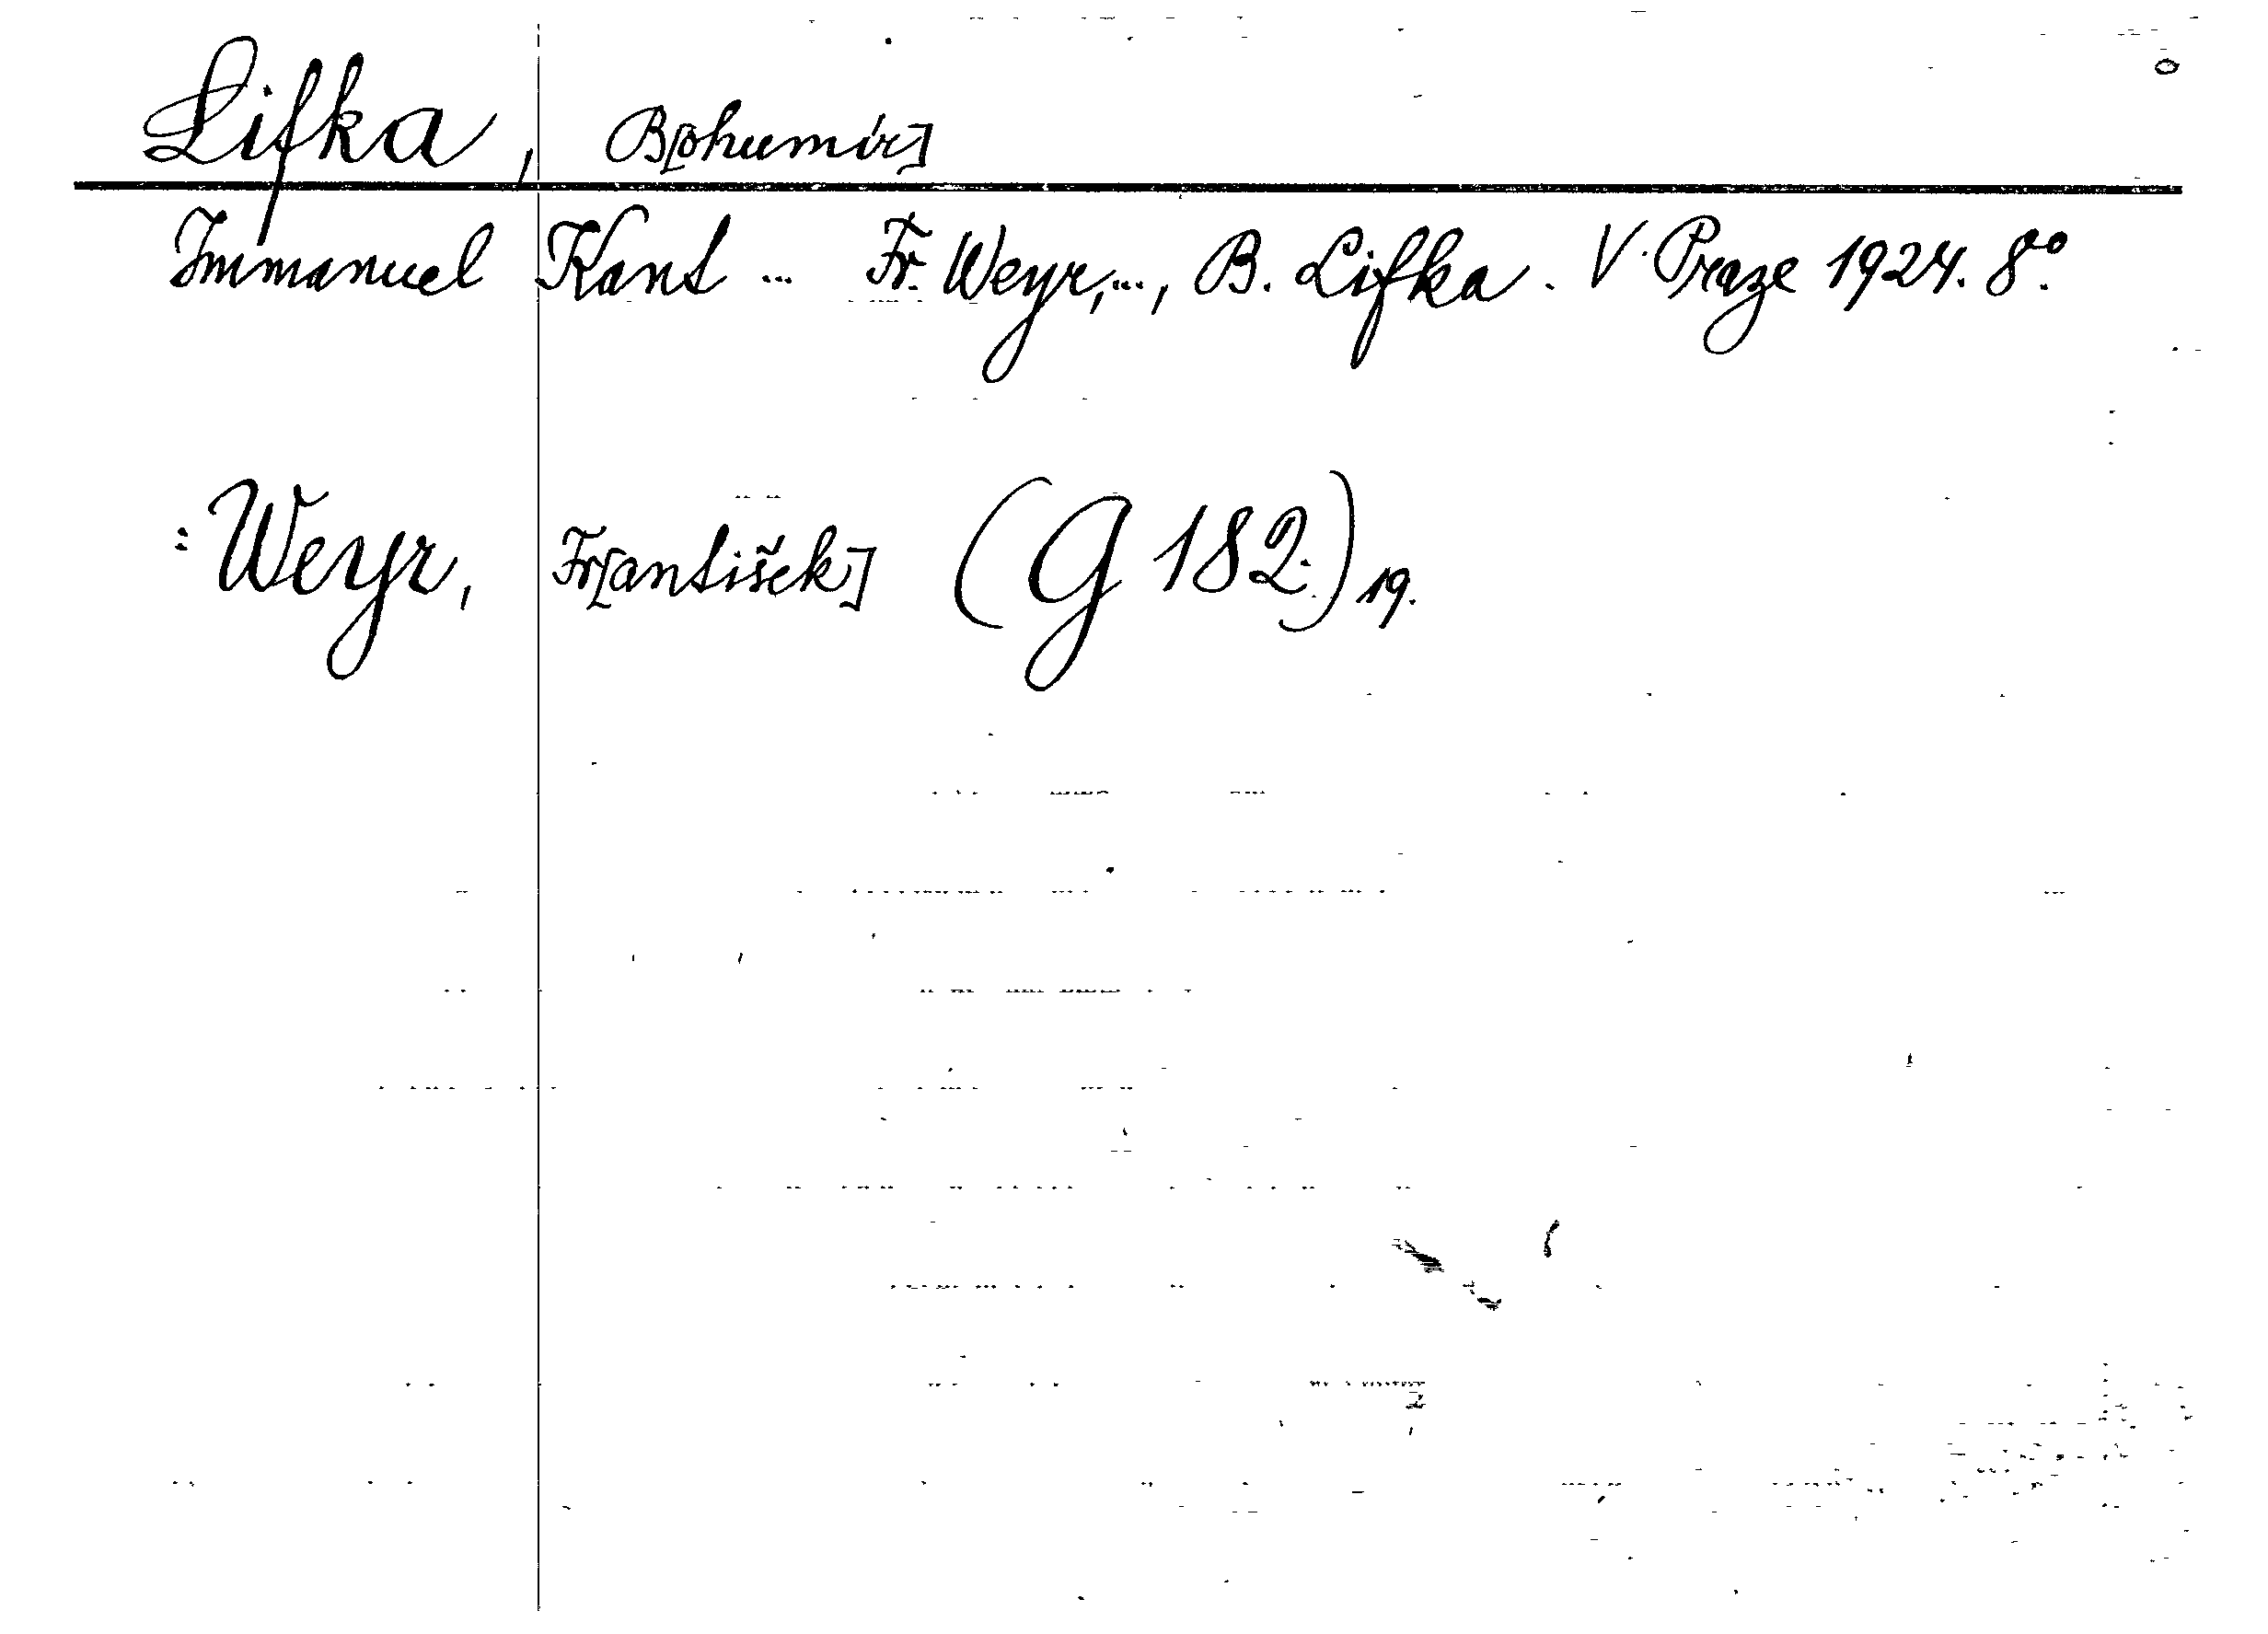 Lifka, B[ohumír]
Immanuel Kant ... Fr. Weyr, ..., B. Lifka. V Praze 1924. 8°.
: Weyr, Fr[antišek] (G 182.) 19.